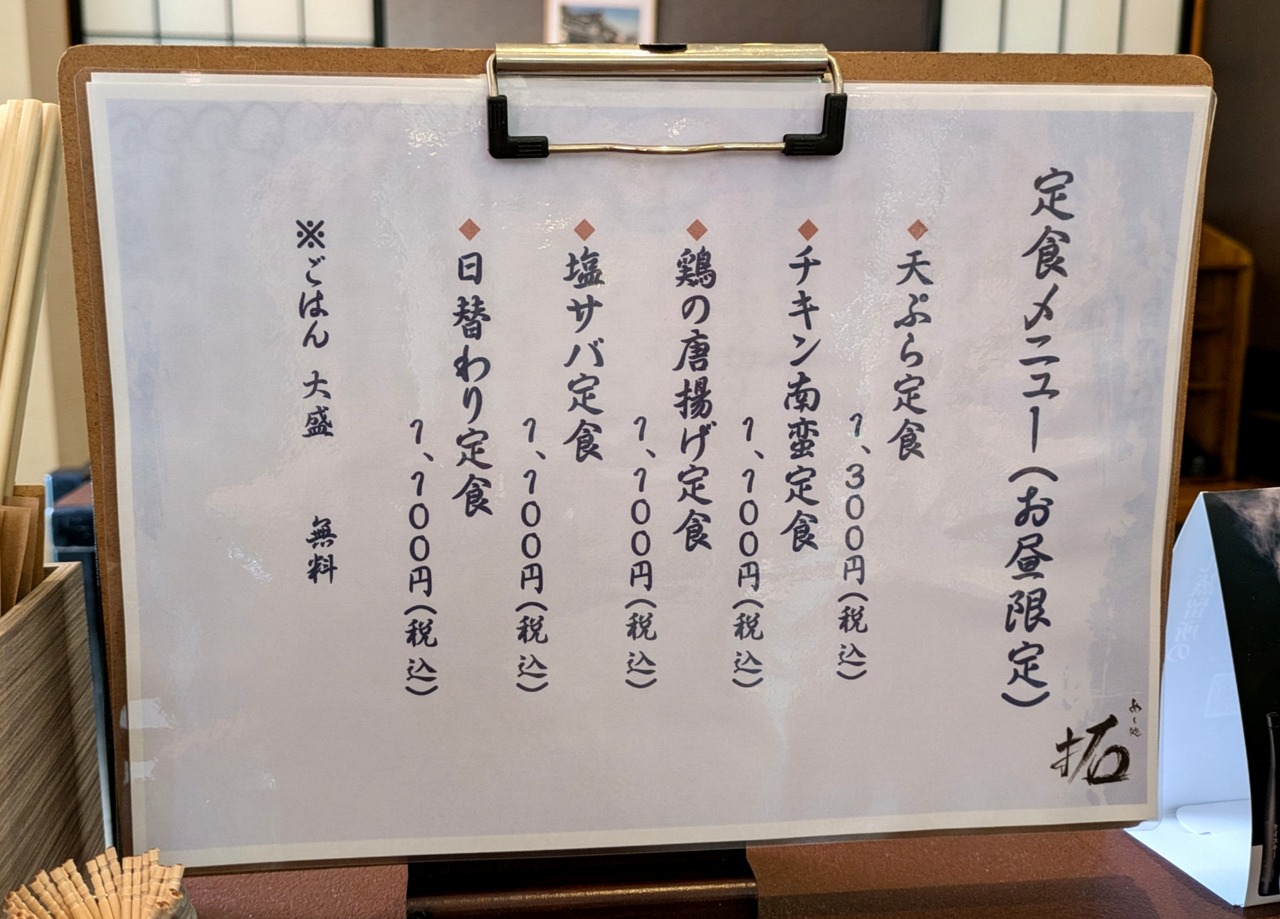 定食メニュー(お昼限定)
めし処
拓
◆天ぷら定食
1、300円(税込)
◆チキン南蛮定食
1、100円(税込)
◆鶏の唐揚げ定食
1、100円(税込)
◆塩サバ定食
1、100円(税込)
◆日替わり定食
1、100円(税込)
※ごはん 大盛 無料